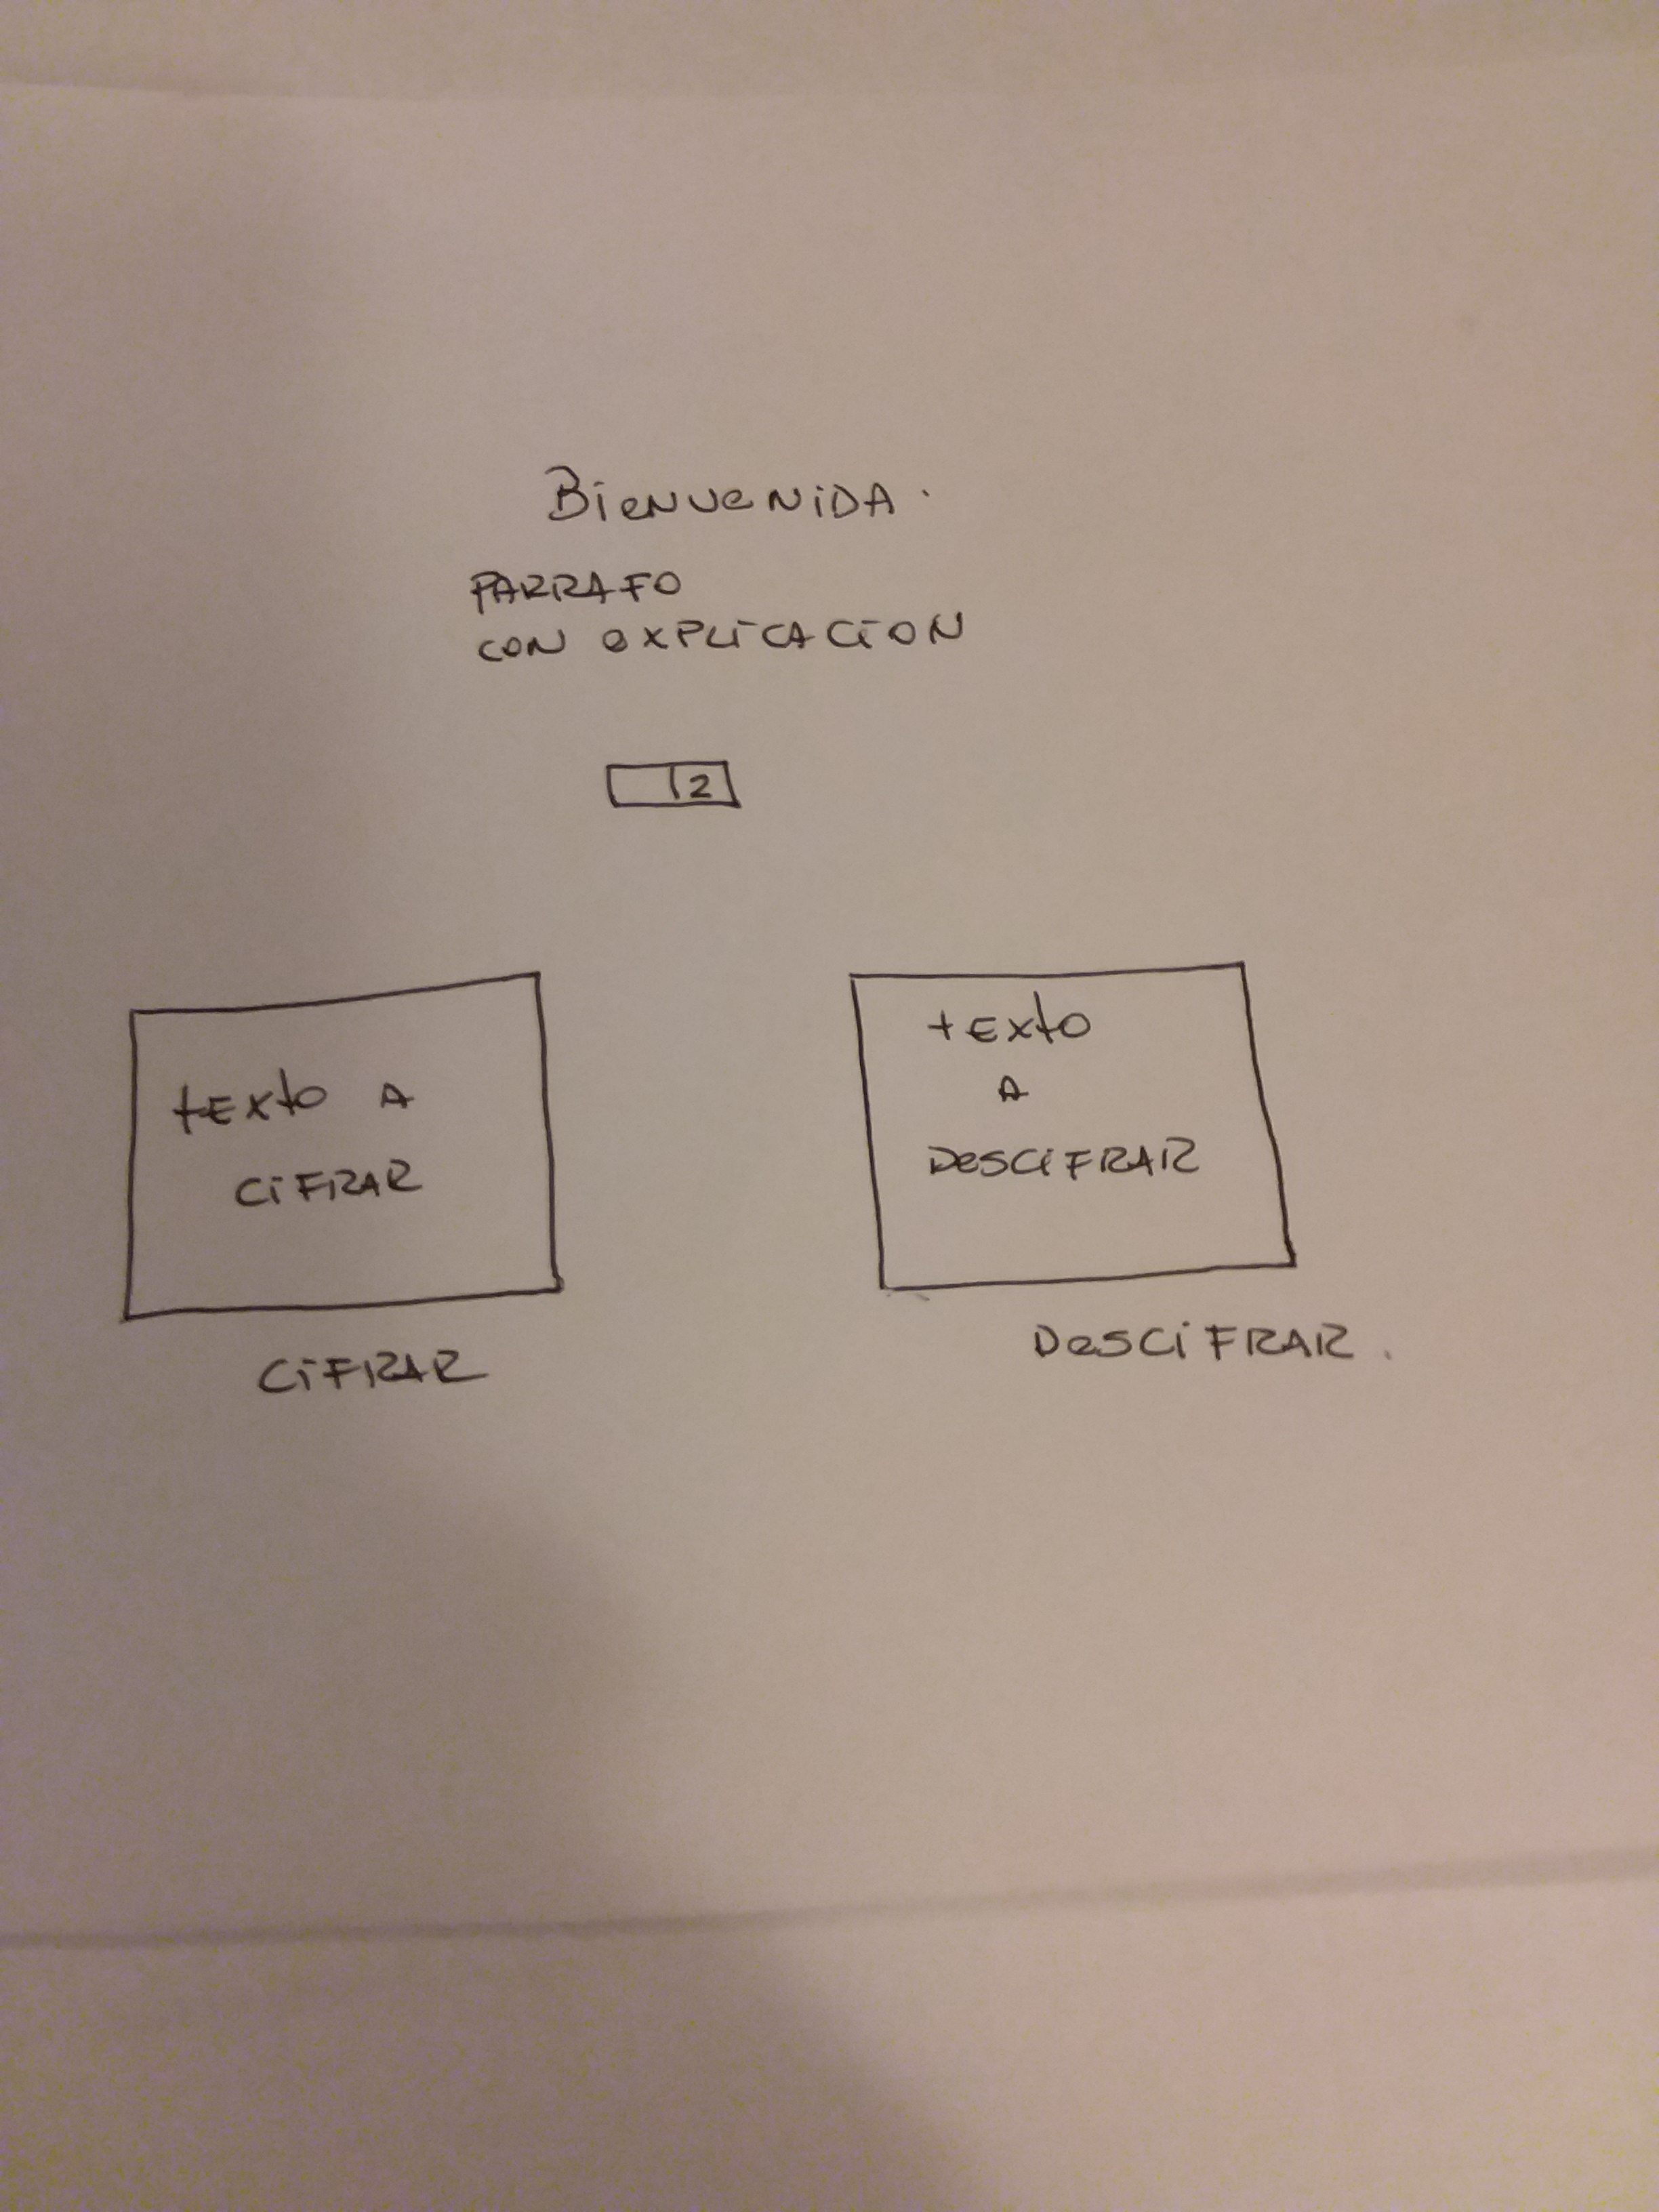 Bienvenida.
PARRAFO
CON EXPLICACION
2
texto A
CIFRAR
texto
A
DESCIFRAR
CIFRAR
DESCIFRAR.